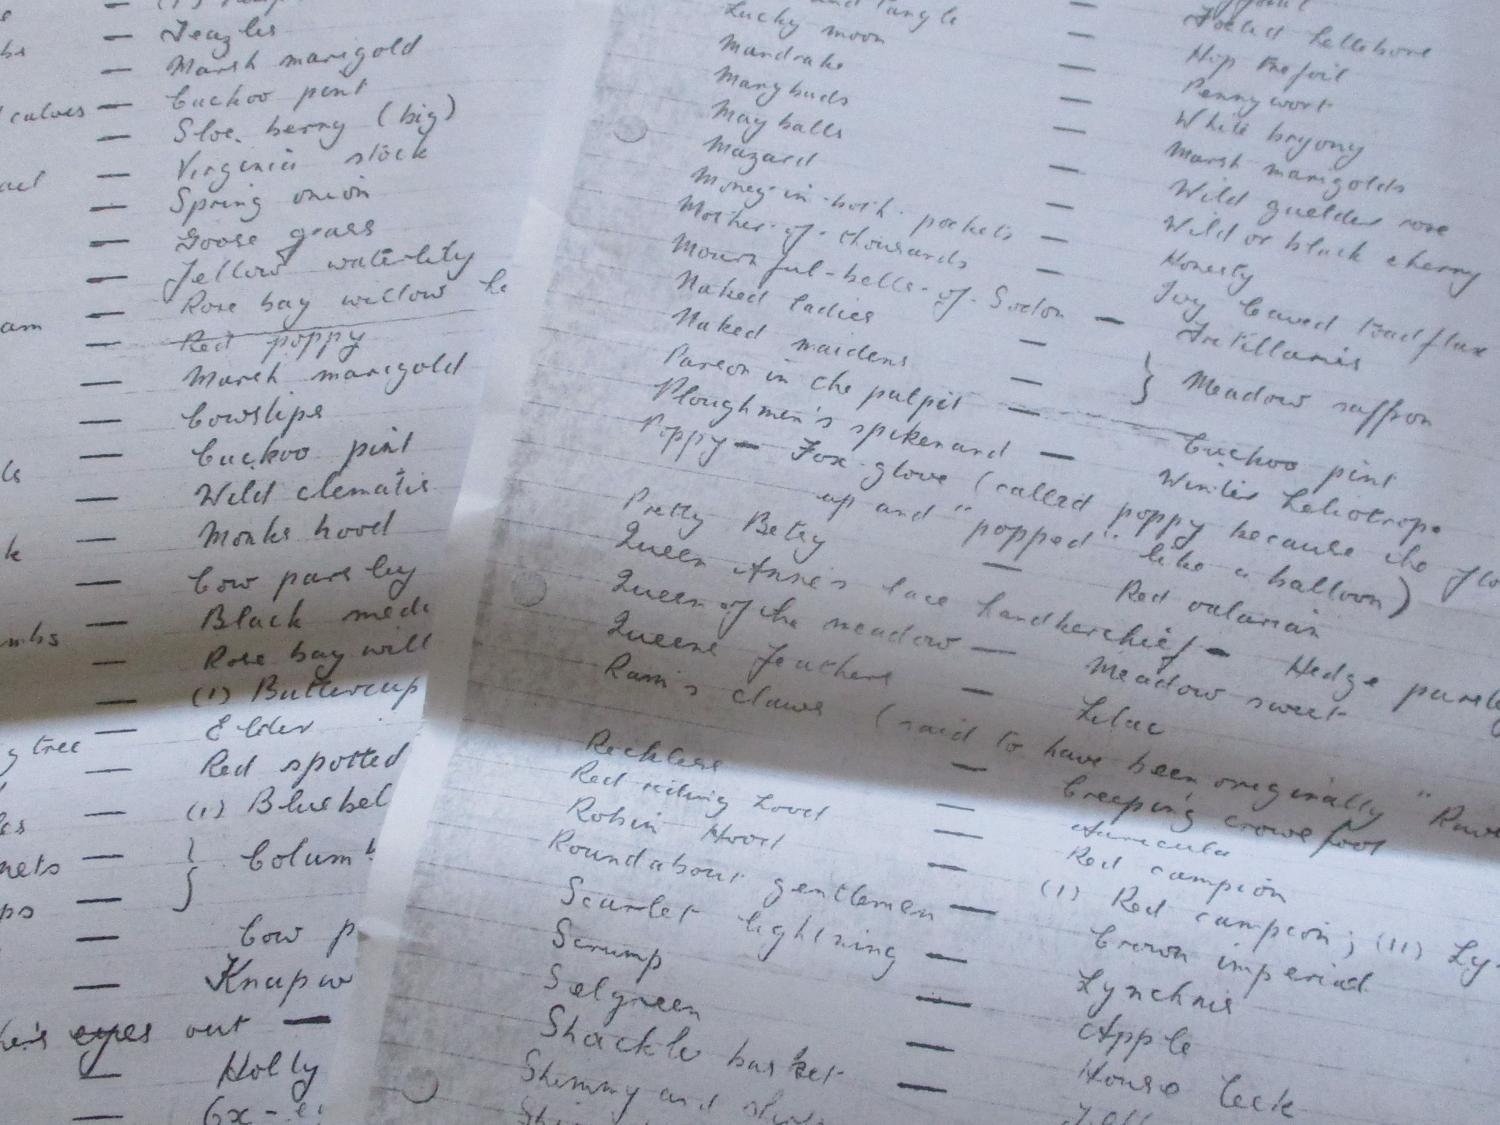 — Teazles
— Marsh marigold
calves — Cuckoo pint
— Sloe. berry (big)
— Virginia stock
— Spring onion
— Goose grass
— Yellow waterlily
— Rose bay willow he
— Red poppy
— Marsh marigold
— Cowslips
— Cuckoo pint
— Wild clematis
— Monks hood
— Cow parsley
— Black medi
— Rose bay will
— (1) Buttercup
tree — Elder
— Red spotted
— (1) Bluebel
— } Colum
—
— Cow p
— Knapw
eyes out —
— Holly
— Ox-e
tangle —
Lucky moon — Foetid hellebore
Mandrake — Hop trefoil
Mary buds — Pennywort
May balls — White bryony
Mazard — Marsh marigolds
Money-in-both-pockets — Wild guelder rose
Mother-of-thousands — Wild or black cherry
Mournful-bells-of-Sodom — Honesty
Naked ladies — Ivy leaved toadflax
Naked maidens — Fritillaries
Parson in the pulpit — } Meadow saffron
Ploughmen's spikenard — Cuckoo pint
Poppy — Fox-glove (called poppy because the flo
Winter heliotrope
up and "popped" like a balloon)
Pretty Betsy — Red valarian
Queen Anne's lace handkerchief — Hedge parsley
Queen of the meadow — Meadow sweet
Queens feathers — Lilac
Ram's claws (said to have been originally "Rav
— Creeping crowsfoot
Reckless — Auricula
Red riding hood — Red campion
Robin Hood — (1) Red campion; (11) Ly
Roundabout gentlemen — Crown imperial
Scarlet lightning — Lynchnis
Scrump — Apple
Selgreen — House leek
Shackle basket —
Shimmy and